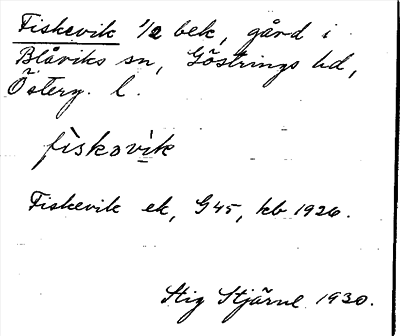 Fiskevik 1/2 bek, gård i
Blåviks sn, Göstrings hd,
Österg. l.
fiskəvik
Fiskevik ek, G45, kb 1926.
Stig Stjärne 1930.